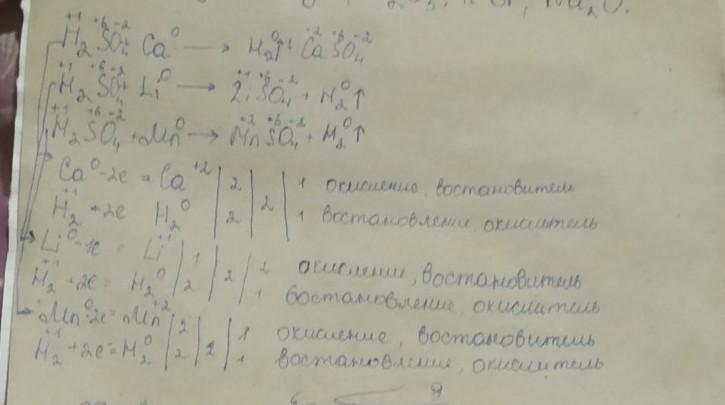 Na₂O.
H₂⁺¹S⁺⁶O₄⁻² + Ca⁰ → H₂⁰↑ + Ca⁺²S⁺⁶O₄⁻²
H₂⁺¹S⁺⁶O₄⁻² + Li⁰ → Li⁺¹S⁺⁶O₄⁻² + H₂⁰↑
H₂⁺¹S⁺⁶O₄⁻² + Mn⁰ → Mn⁺²S⁺⁶O₄⁻² + H₂⁰↑
Ca⁰ -2e = Ca⁺² | 2 | | 1 окисление, востановитель
H₂⁺¹ +2e H₂⁰ | 2 | 2 | 1 востановление, окислитель
Li⁰ -1e = Li⁺¹ | 1 | | 2 окисление, востановитель
H₂⁺¹ +2e = H₂⁰ | 2 | 2 | 1 востановление, окислитель
Mn⁰ -2e = Mn⁺² | 2 | | 1 окисление, востановитель
H₂⁺¹ +2e = H₂⁰ | 2 | 2 | 1 востановление, окислитель